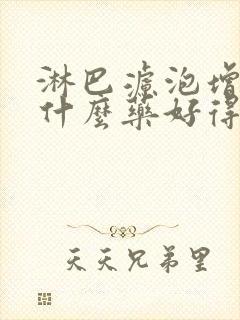 淋巴濾泡增
什麼藥好得
天天兄弟里